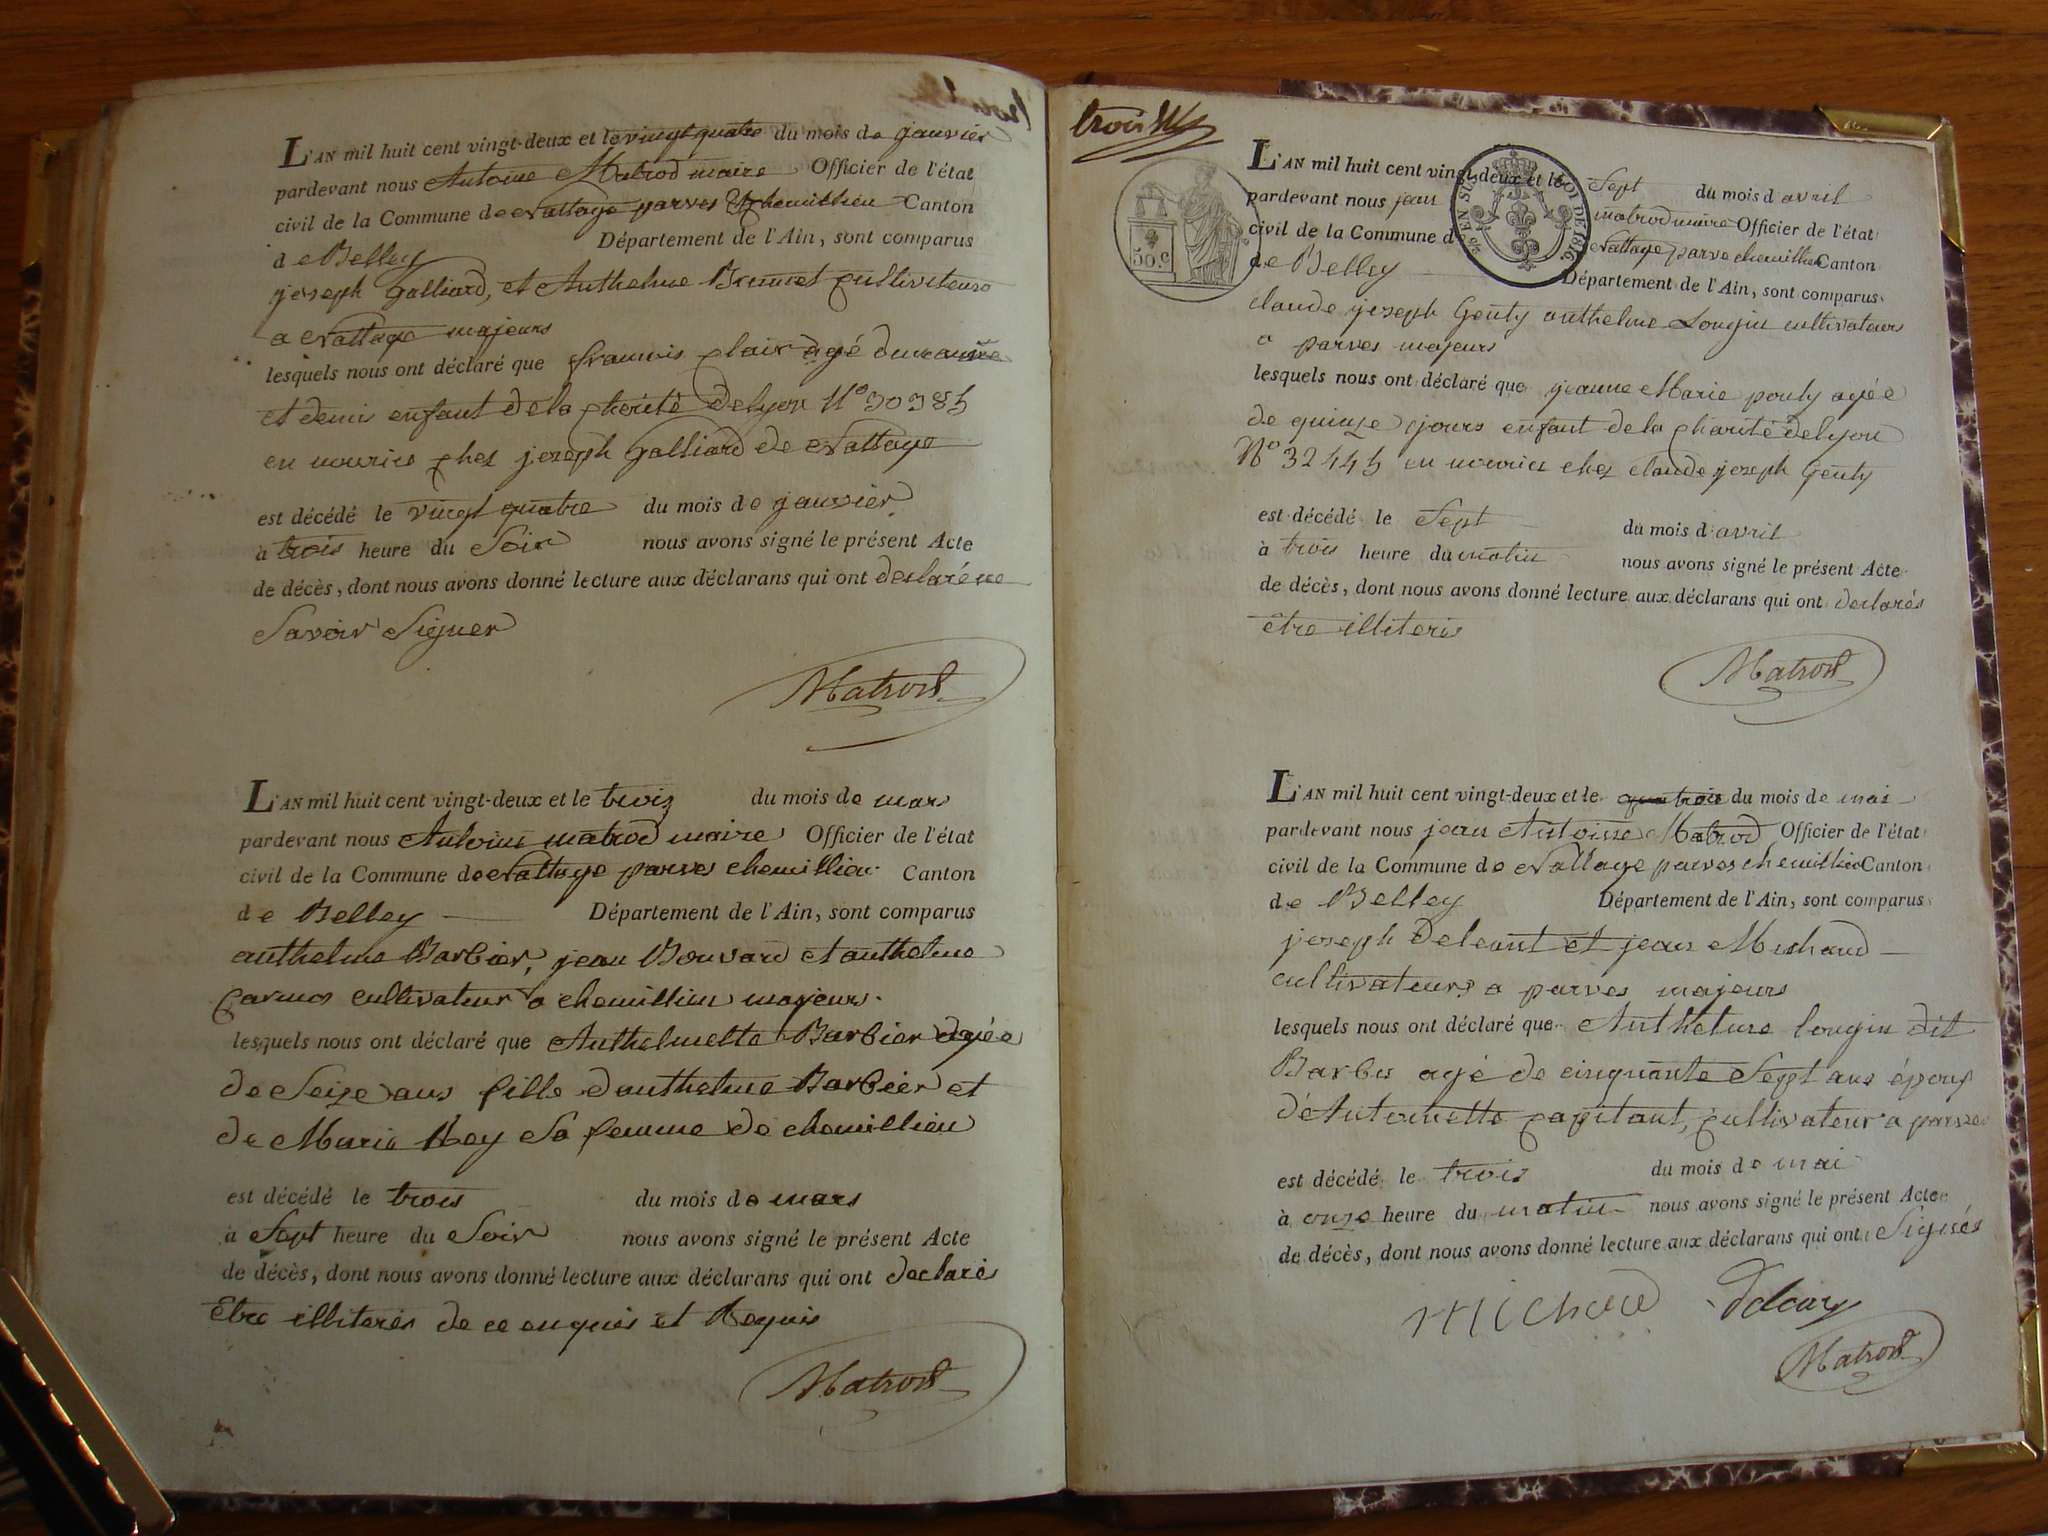 L'AN mil huit cent vingt-deux et le vingt quatre du mois de janvier
pardevant nous Antoine Matrod maire Officier de l'état
civil de la Commune de Nattage parves & chemillieu Canton
de Belley Département de l'Ain, sont comparus
joseph Galliard, et Anthelme Brunet cultivateurs
a Nattage majeurs
lesquels nous ont déclaré que francois clair agé
et demi enfant de la charité de lyon N° 30385
en nourice chez joseph Galliard de Nattage
est décédé le vingt quatre du mois de janvier
à trois heure du Soir nous avons signé le présent Acte
de décès, dont nous avons donné lecture aux déclarans qui ont déclaré ne
Savoir Signer
Matrod
L'AN mil huit cent vingt-deux et le trois du mois de mars
pardevant nous Antoine matrod maire Officier de l'état
civil de la Commune de Nattage parves chemillieu Canton
de Belley Département de l'Ain, sont comparus
anthelme Barbier, jean Bouvard et anthelme
cultivateur a chemillieu majeurs.
lesquels nous ont déclaré que Anthelmette Barbier agée
de Seize ans fille d'anthelme Barbier et
de Marie Rey Sa femme de chemillieu
est décédé le trois du mois de mars
à Sept heure du Soir nous avons signé le présent Acte
de décès, dont nous avons donné lecture aux déclarans qui ont declarés
Etre illiterés de ce enquis et Requis
Matrod
trois
50.c
L'AN mil huit cent vingt-deux et le Sept du mois d avril
pardevant nous jean matrod maire Officier de l'état
civil de la Commune de Nattage parve chemillieu Canton
de Belley Département de l'Ain, sont comparus
claude joseph Genty anthelme Longin cultivateurs
a parves majeurs
lesquels nous ont déclaré que jeanne Marie pouly agée
de quinze jours enfant de la charité de lyon
N° 32445 en nourice chez claude joseph Genty
est décédé le Sept du mois d avril
à trois heure du matin nous avons signé le présent Acte
de décès, dont nous avons donné lecture aux déclarans qui ont declarés
être illiterés
Matrod
L'AN mil huit cent vingt-deux et le du mois de mai
pardevant nous jean Antoine Matrod Officier de l'état
civil de la Commune de Nattage parves chemillieu Canton
de Belley Département de l'Ain, sont comparus
joseph et jean Michaud
cultivateurs a parves majeurs
lesquels nous ont déclaré que Anthelme longin dit
Barbes agé de cinquante Sept ans époux
d'Antoinette capitant, cultivateur a parves
est décédé le trois du mois de mai
à onze heure du matin nous avons signé le présent Acte
de décès, dont nous avons donné lecture aux déclarans qui ont Signés
Matrod